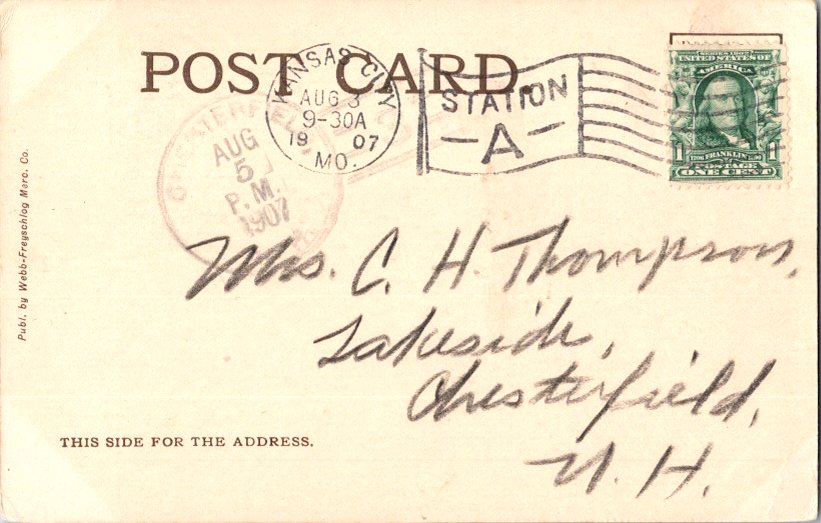 POST CARD.
KANSAS CITY
AUG 3
9-30A
19 07
MO.
STATION
A
SERIES 1902
UNITED STATES OF
AMERICA
1 1706 FRANKLIN 1790 1
POSTAGE
ONE CENT
CHESTERFIELD
AUG
5
P.M.
1907
Mrs. C. H Thompson,
Lakeside,
Chesterfield,
N. H.
THIS SIDE FOR THE ADDRESS.
Publ. by Webb-Freyschlag Merc. Co.